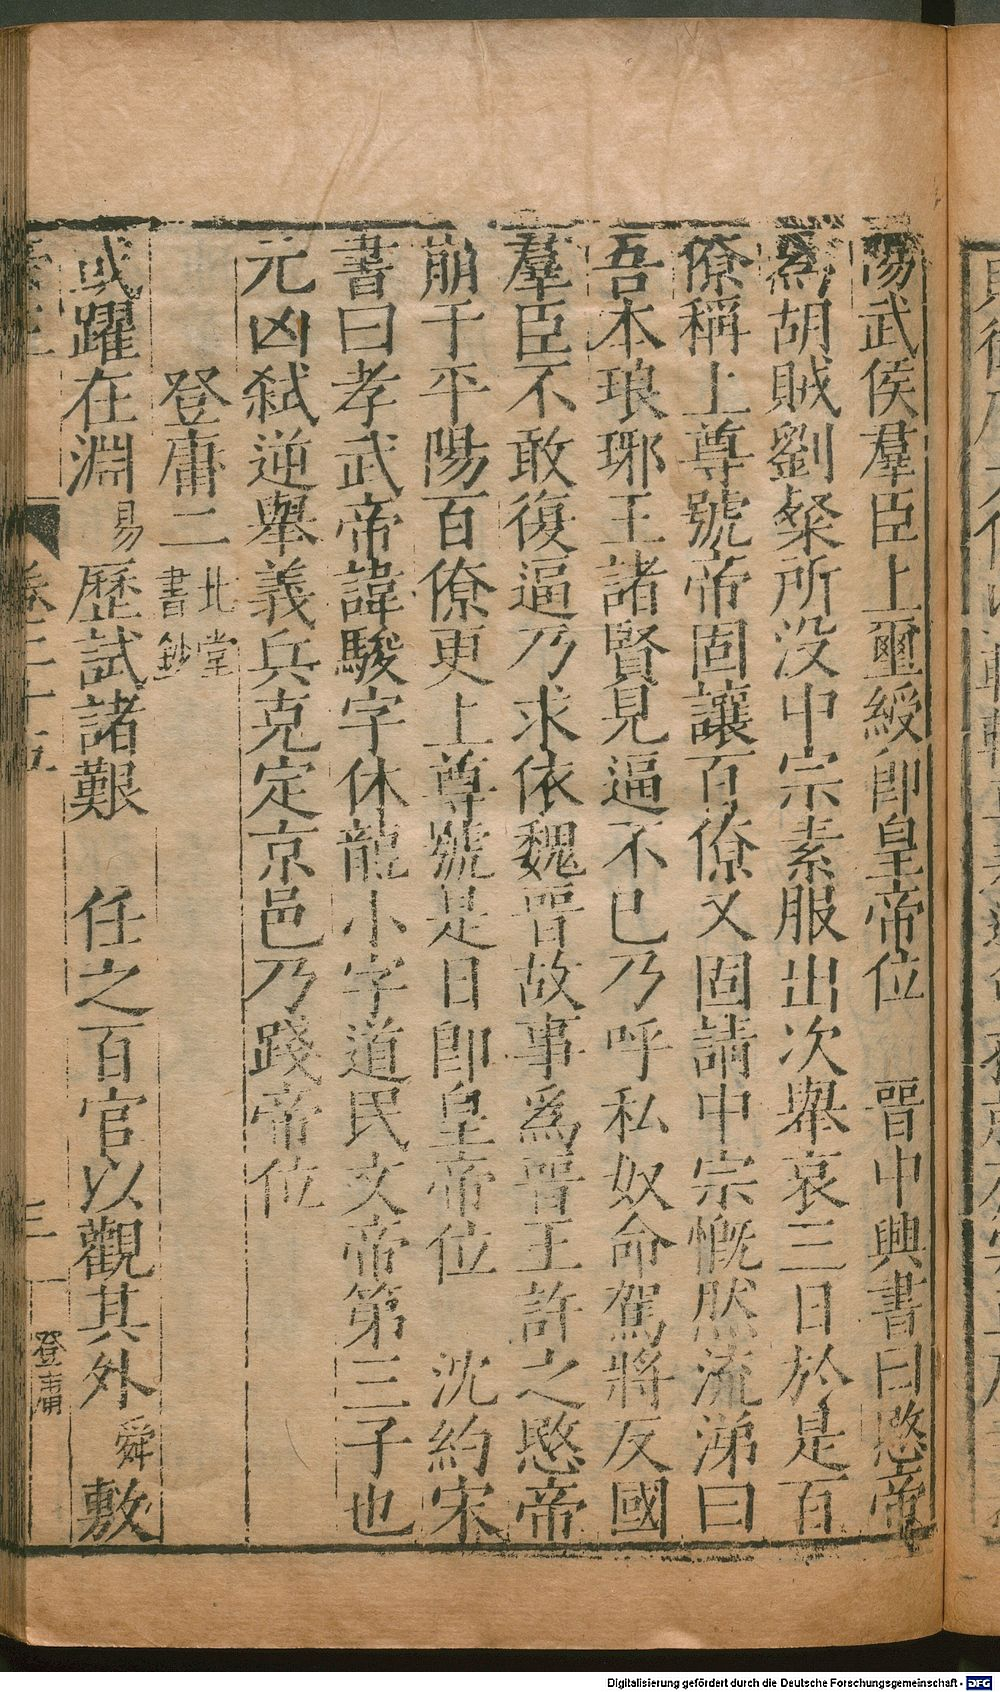 陽武侯羣臣上璽綬卽皇帝位　晉中興書曰愍帝
爲胡賊劉粲所没中宗素服出次舉哀三日於是百
僚稱上尊號帝固讓百僚又固請中宗慨然流涕曰
吾本琅琊王諸賢見逼不已乃呼私奴命駕將反國
羣臣不敢復逼乃求依魏晉故事爲晉王許之愍帝
崩于平陽百僚更上尊號是日卽皇帝位　沈約宋
書曰孝武帝諱駿字休龍小字道民文帝第三子也
元凶弑逆舉義兵克定京邑乃踐帝位
登庸二 北堂書鈔
或躍在淵 易 歷試諸艱　任之百官以觀其外 舜 敷
卷三十五　三　登庸
Digitalisierung gefördert durch die Deutsche Forschungsgemeinschaft - DFG